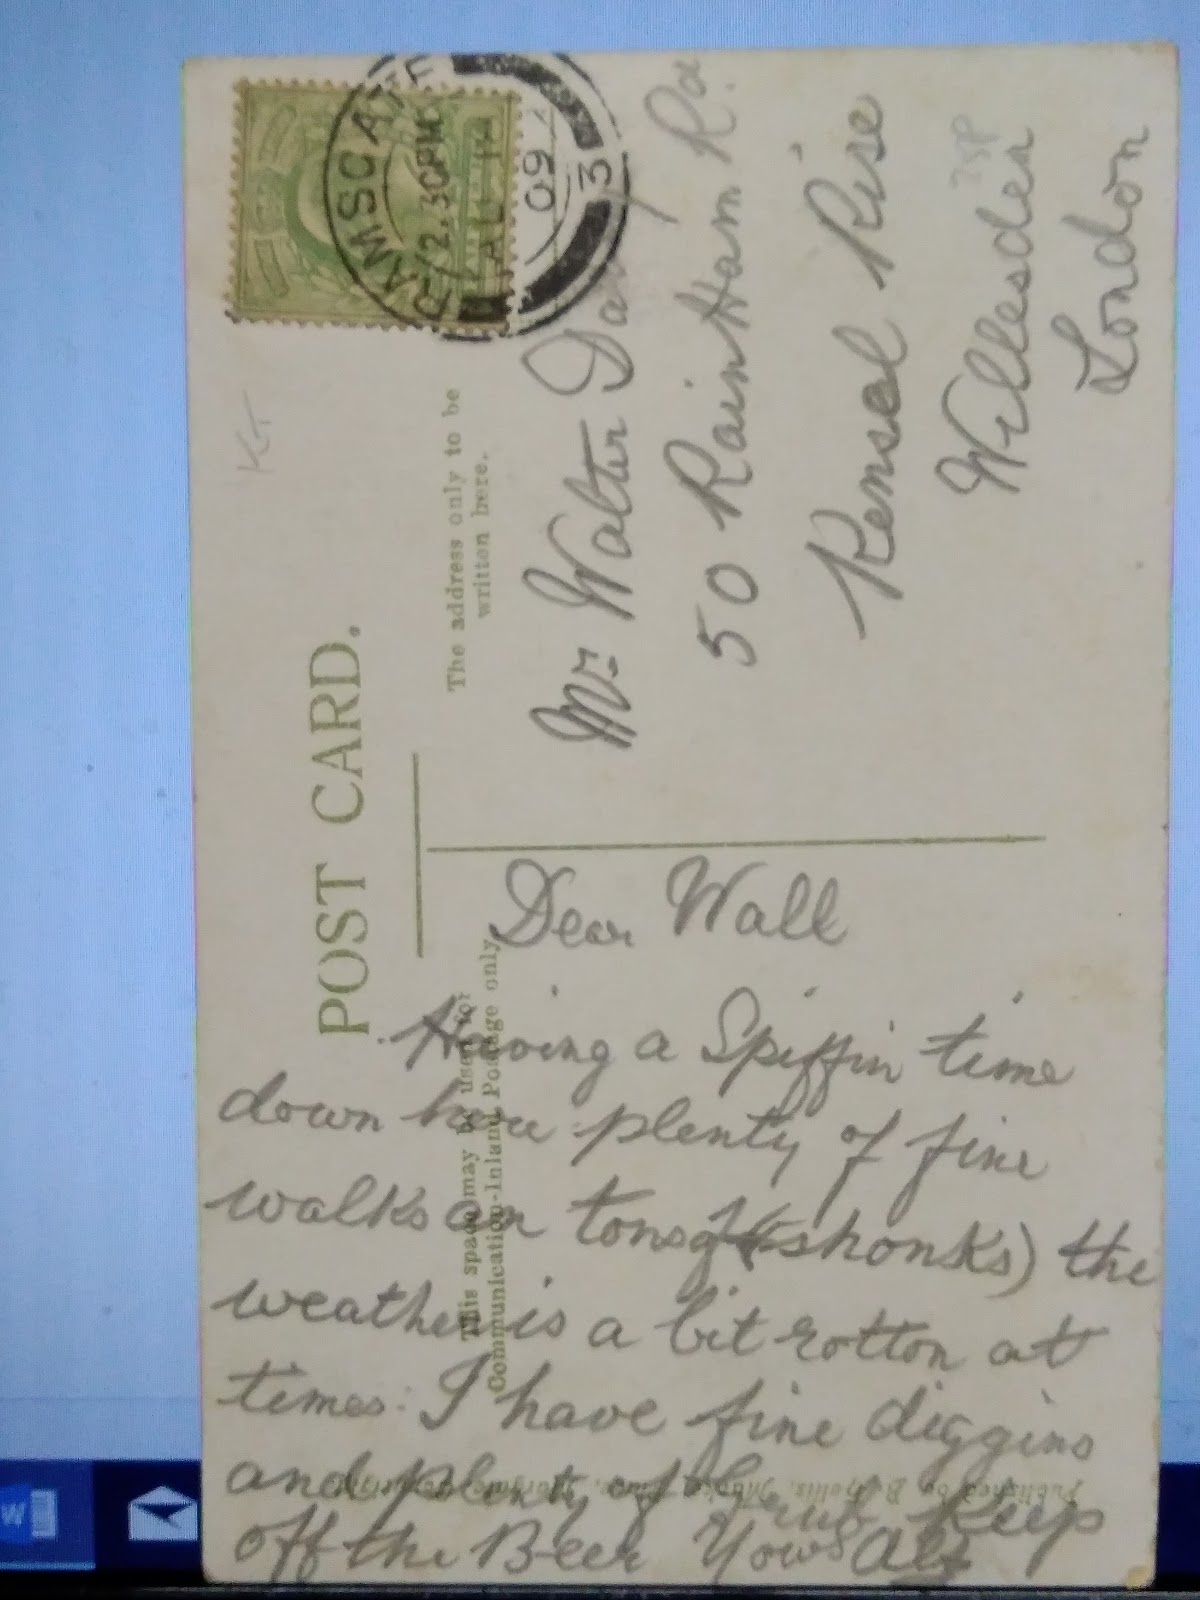 POST CARD.
This space may be used for
Communication-Inland Postage only.
The address only to be
written here.
RAMSGATE
2.30PM
JL 14
09
3
Mr. Walter
50 RainHam Rd
Kensel Rise
Willesden
London
Dear Wall
Having a Spiffin time
down here plenty of fine
walks an tons of (shonks) the
weather is a bit rotton at
times. I have fine diggins
and plenty of Grub Keep
off the Beer Yours Alf
Published by